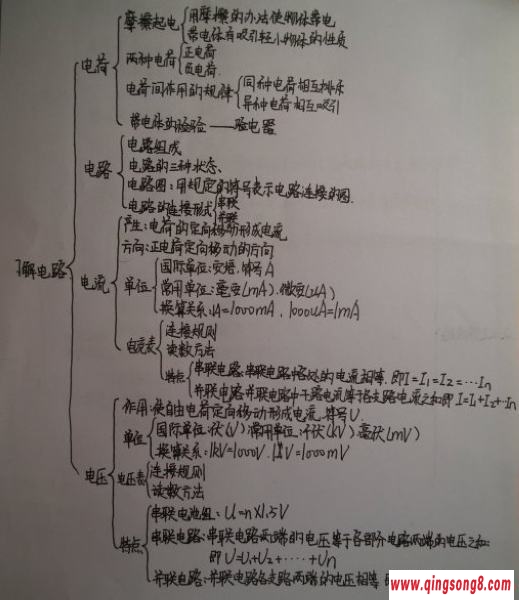 了解电路
电荷
摩擦起电
用摩擦的办法使物体带电
带电体有吸引轻小物体的性质
两种电荷
正电荷
负电荷.
电荷间作用的规律
同种电荷相互排斥
异种电荷相互吸引
带电体的检验——验电器
电路
电路组成
电路的三种状态、
电路图:用规定的符号表示电路连接的图.
电路的连接形式
串联
并联
电流
产生:电荷的定向移动形成电流
方向:正电荷定向移动的方向
单位
国际单位:安培.符号A
常用单位:毫安(mA).微安(uA)
换算关系:1A=1000mA.1000uA=1mA
电流表
连接规则
读数方法
特点
串联电路:串联电路中各处的电流相等.即I=I₁=I₂=…In
并联电路:并联电路中干路电流等于各支路电流之和即I=I₁+I₂+…In
电压
作用:使自由电荷定向移动形成电流.符号U.
单位
国际单位:伏(V)常用单位:千伏(kV)毫伏(mV)
换算关系:1kV=1000V.1V=1000mV
电压表
连接规则
读数方法
特点
串联电池组:U=n×1.5V
串联电路:串联电路两端的电压等于各部分电路两端的电压之和:
即U=U₁+U₂+……+Un
并联电路:并联电路各支路两端的电压相等
www.qingsong8.com